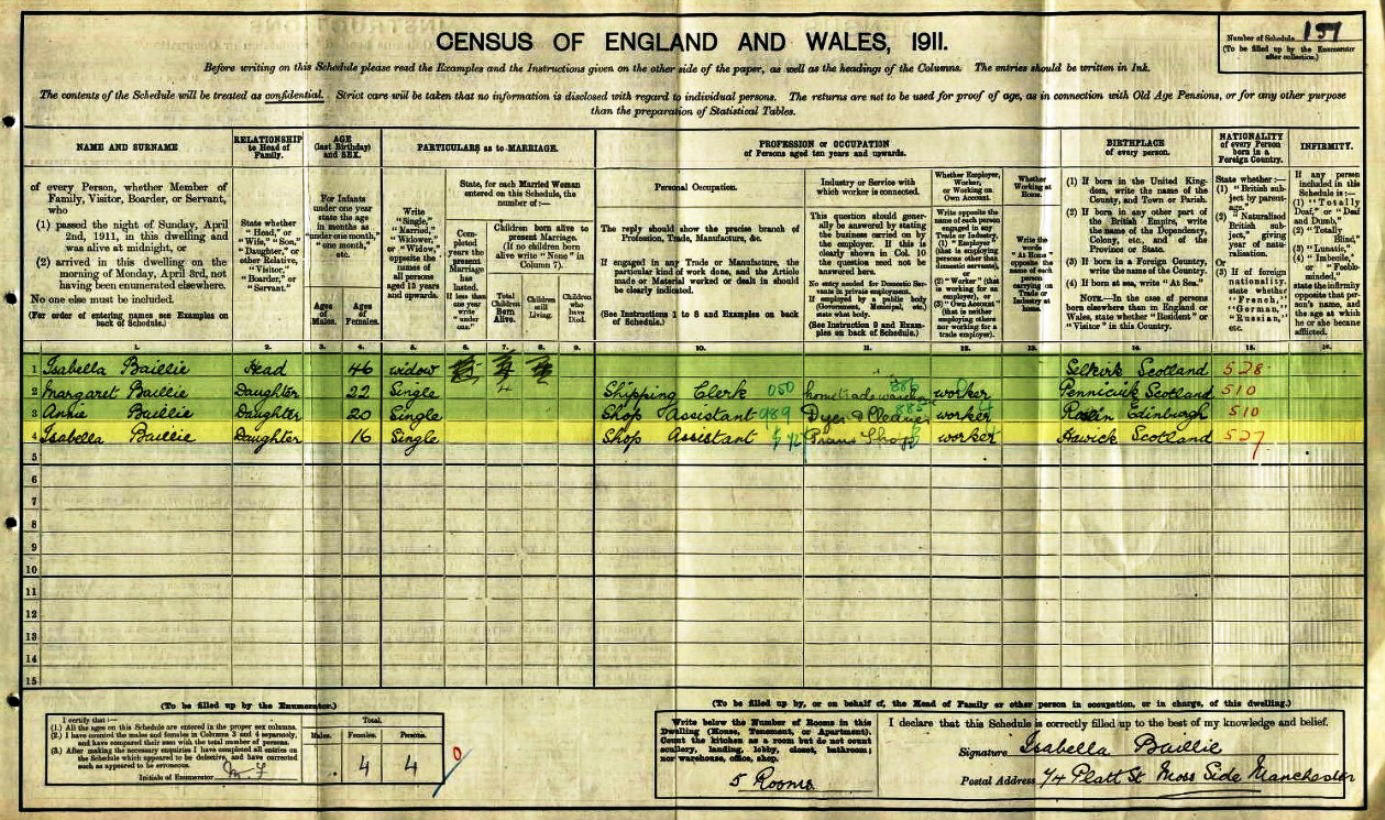 CENSUS OF ENGLAND AND WALES, 1911.
Number of Schedule 151
(To be filled up by the Enumerator after collection.)
Before writing on this Schedule please read the Examples and the Instructions given on the other side of the paper, as well as the headings of the Columns. The entries should be written in Ink.
The contents of the Schedule will be treated as confidential. Strict care will be taken that no information is disclosed with regard to individual persons. The returns are not to be used for proof of age, as in connection with Old Age Pensions, or for any other purpose
than the preparation of Statistical Tables.
NAME AND SURNAME
of every Person, whether Member of
Family, Visitor, Boarder, or Servant,
who
(1) passed the night of Sunday, April
2nd, 1911, in this dwelling and
was alive at midnight, or
(2) arrived in this dwelling on the
morning of Monday, April 3rd, not
having been enumerated elsewhere.
No one else must be included.
(For order of entering names see Examples on
back of Schedule.)
RELATIONSHIP
to Head of
Family.
State whether
"Head," or
"Wife," "Son,"
"Daughter," or
other Relative,
"Visitor,"
"Boarder," or
"Servant."
AGE
(last Birthday)
and SEX.
For Infants
under one year
state the age
in months as
"under one month,"
"one month,"
etc.
Ages
of
Males.
Ages
of
Females.
PARTICULARS as to MARRIAGE.
Write
"Single,"
"Married,"
"Widower,"
or "Widow,"
opposite the
names of
all persons
aged 15 years
and upwards.
State, for each Married Woman
entered on this Schedule, the
number of:—
Completed
years the
present
Marriage
has
lasted.
If less
than one
year
write
"under
one."
Children born alive to
present Marriage.
(If no children born
alive write "None" in
Column 7).
Total
Children
Born
Alive.
Children
still
Living.
Children
who
have
Died.
PROFESSION or OCCUPATION
of Persons aged ten years and upwards.
Personal Occupation.
The reply should show the precise branch of
Profession, Trade, Manufacture, &c.
If engaged in any Trade or Manufacture, the
particular kind of work done, and the Article
made or Material worked or dealt in should
be clearly indicated.
(See Instructions 1 to 8 and Examples on back
of Schedule.)
Industry or Service with
which worker is connected.
This question should gener-
ally be answered by stating
the business carried on by
the employer. If this is
clearly shown in Col. 10
the question need not be
answered here.
No entry needed for Domestic Ser-
vants in private employment.
If employed by a public body
(Government, Municipal, etc.)
state what body.
(See Instruction 9 and Exam-
ples on back of Schedule.)
Whether Employer,
Worker,
or Working on
Own Account.
Write opposite the
name of each person
engaged in any
Trade or Industry,
(1) "Employer"
(that is employing
persons other than
domestic servants),
or
(2) "Worker" (that
is working for an
employer), or
(3) "Own Account"
(that is neither
employing others
nor working for a
trade employer).
Whether
Working at
Home.
Write the
words
"At Home"
opposite the
name of each
person
carrying on
Trade or
Industry at
home.
BIRTHPLACE
of every person.
(1) If born in the United King-
dom, write the name of the
County, and Town or Parish.
(2) If born in any other part of
the British Empire, write
the name of the Dependency,
Colony, etc., and of the
Province or State.
(3) If born in a Foreign Country,
write the name of the Country.
(4) If born at sea, write "At Sea."
NOTE.—In the case of persons
born elsewhere than in England or
Wales, state whether "Resident" or
"Visitor" in this Country.
NATIONALITY
of every Person
born in a
Foreign Country.
State whether:—
(1) "British sub-
ject by parent-
age."
(2) "Naturalised
British
sub-
ject," giving
year of natu-
ralisation.
Or
(3) If of foreign
nationality,
state whether
"French,"
"German,"
"Russian,"
etc.
INFIRMITY.
If any person
included in this
Schedule is:—
(1) "Totally
Deaf," or "Deaf
and Dumb,"
(2) "Totally
Blind,"
(3) "Lunatic,"
(4) "Imbecile,"
or "Feeble-
minded,"
state the infirmity
opposite that per-
son's name, and
the age at which
he or she became
afflicted.
1. 2. 3. 4. 5. 6. 7. 8. 9. 10. 11. 12. 13. 14. 15. 16.
1 Isabella Baillie Head 46 widow Selkirk Scotland 528
2 Margaret Baillie Daughter 22 Single 4 Shipping Clerk 050 hometrade 886 worker Pennicuik Scotland 510
3 Annie Baillie Daughter 20 Single Shop Assistant 989 Dyer & Cleaner 885 worker Roslin Edinburgh 510
4 Isabella Baillie Daughter 16 Single Shop Assistant Shop worker Hawick Scotland 527
5
6
7
8
9
10
11
12
13
14
15
(To be filled up by the Enumerator.)
I certify that:—
(1.) All the ages on this Schedule are entered in the proper sex columns.
(2.) I have counted the males and females in Columns 3 and 4 separately,
and have compared their sum with the total number of persons.
(3.) After making the necessary enquiries I have completed all entries on
the Schedule which appeared to be defective, and have corrected
such as appeared to be erroneous.
Initials of Enumerator
Total.
Males. Females. Persons.
4 4 0
(To be filled up by, or on behalf of, the Head of Family or other person in occupation, or in charge, of this dwelling.)
Write below the Number of Rooms in this
Dwelling (House, Tenement, or Apartment).
Count the kitchen as a room but do not count
scullery, landing, lobby, closet, bathroom;
nor warehouse, office, shop.
5 Rooms.
I declare that this Schedule is correctly filled up to the best of my knowledge and belief.
Signature Isabella Baillie
Postal Address 74 Platt St Moss Side Manchester